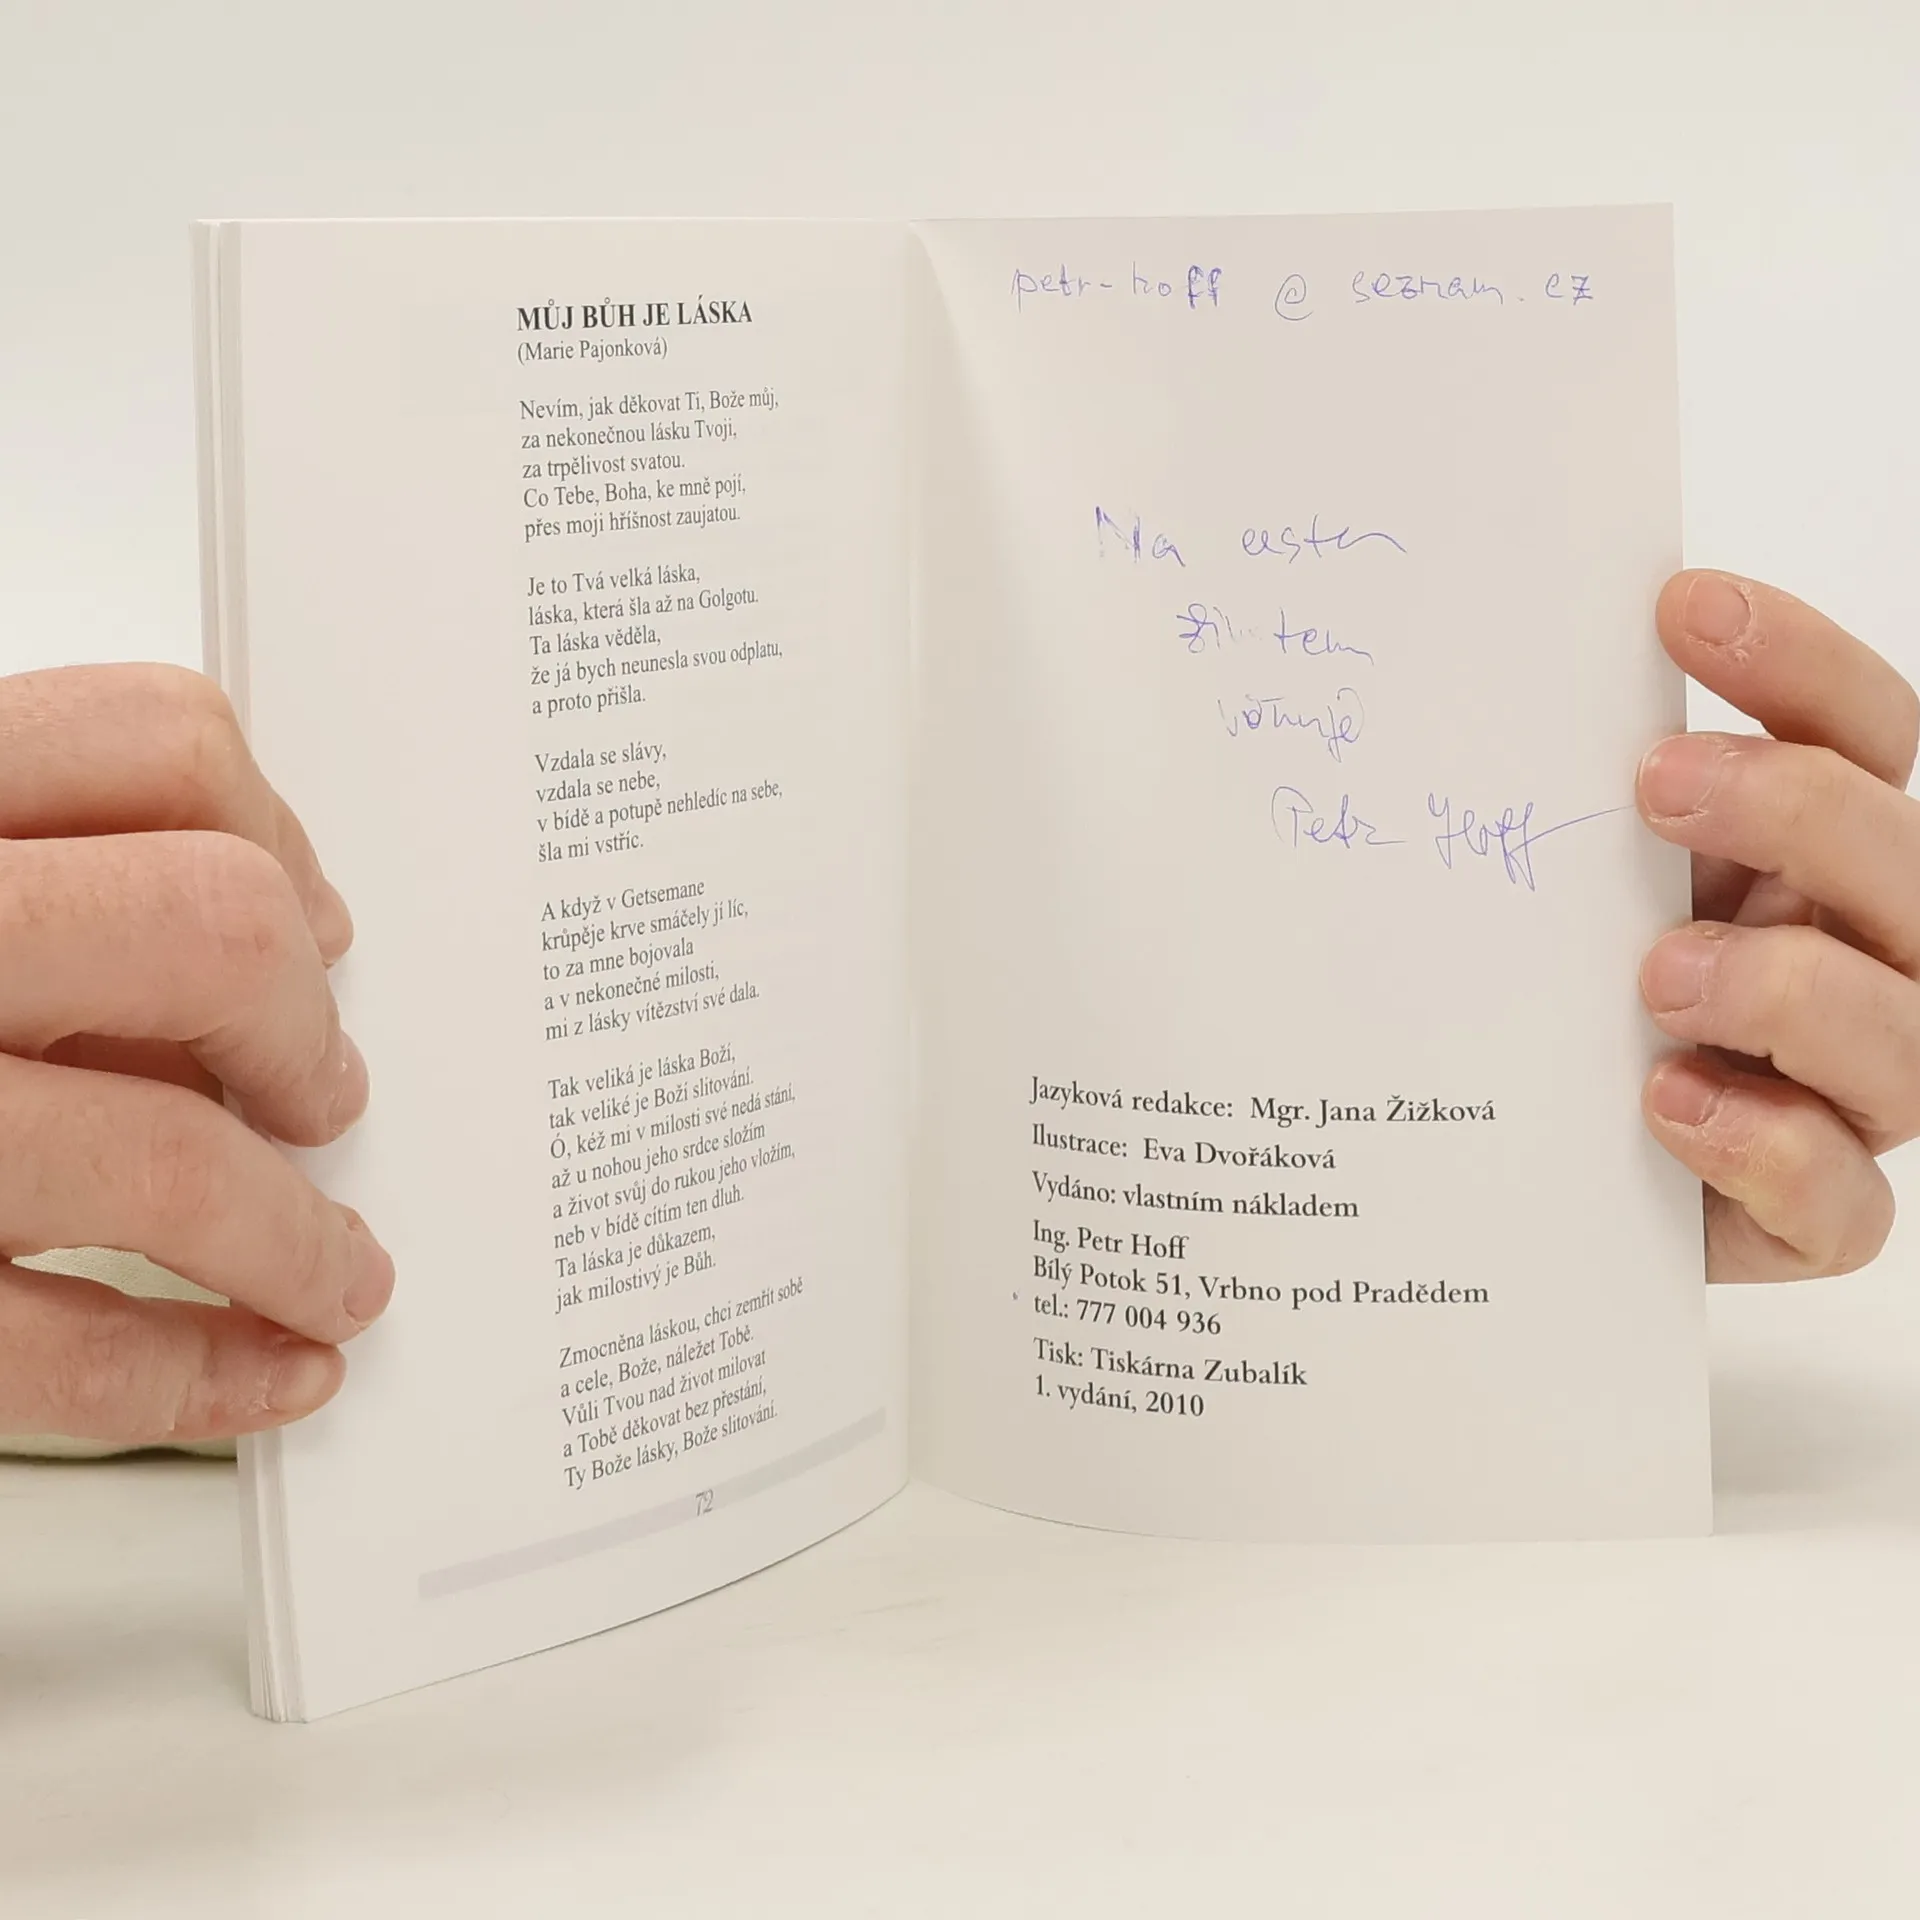 MŮJ BŮH JE LÁSKA
(Marie Pajonková)
Nevím, jak děkovat Ti, Bože můj,
za nekonečnou lásku Tvoji,
za trpělivost svatou.
Co Tebe, Boha, ke mně pojí,
přes moji hříšnost zaujatou.
Je to Tvá velká láska,
láska, která šla až na Golgotu.
Ta láska věděla,
že já bych neunesla svou odplatu,
a proto přišla.
Vzdala se slávy,
vzdala se nebe,
v bídě a potupě nehledíc na sebe,
šla mi vstříc.
A když v Getsemane
krůpěje krve smáčely jí líc,
to za mne bojovala
a v nekonečné milosti,
mi z lásky vítězství své dala.
Tak veliká je láska Boží,
tak veliké je Boží slitování.
Ó, kéž mi v milosti své nedá stání,
až u nohou jeho srdce složím
a život svůj do rukou jeho vložím,
neb v bídě cítím ten dluh.
Ta láska je důkazem,
jak milostivý je Bůh.
Zmocněna láskou, chci zemřít sobě
a cele, Bože, náležet Tobě.
Vůli Tvou nad život milovat
a Tobě děkovat bez přestání,
Ty Bože lásky, Bože slitování.
72
petr-hoff @ seznam.cz
Na cestu
životem
věnuje
Petr Hoff
Jazyková redakce: Mgr. Jana Žižková
Ilustrace: Eva Dvořáková
Vydáno: vlastním nákladem
Ing. Petr Hoff
Bílý Potok 51, Vrbno pod Pradědem
tel.: 777 004 936
Tisk: Tiskárna Zubalík
1. vydání, 2010